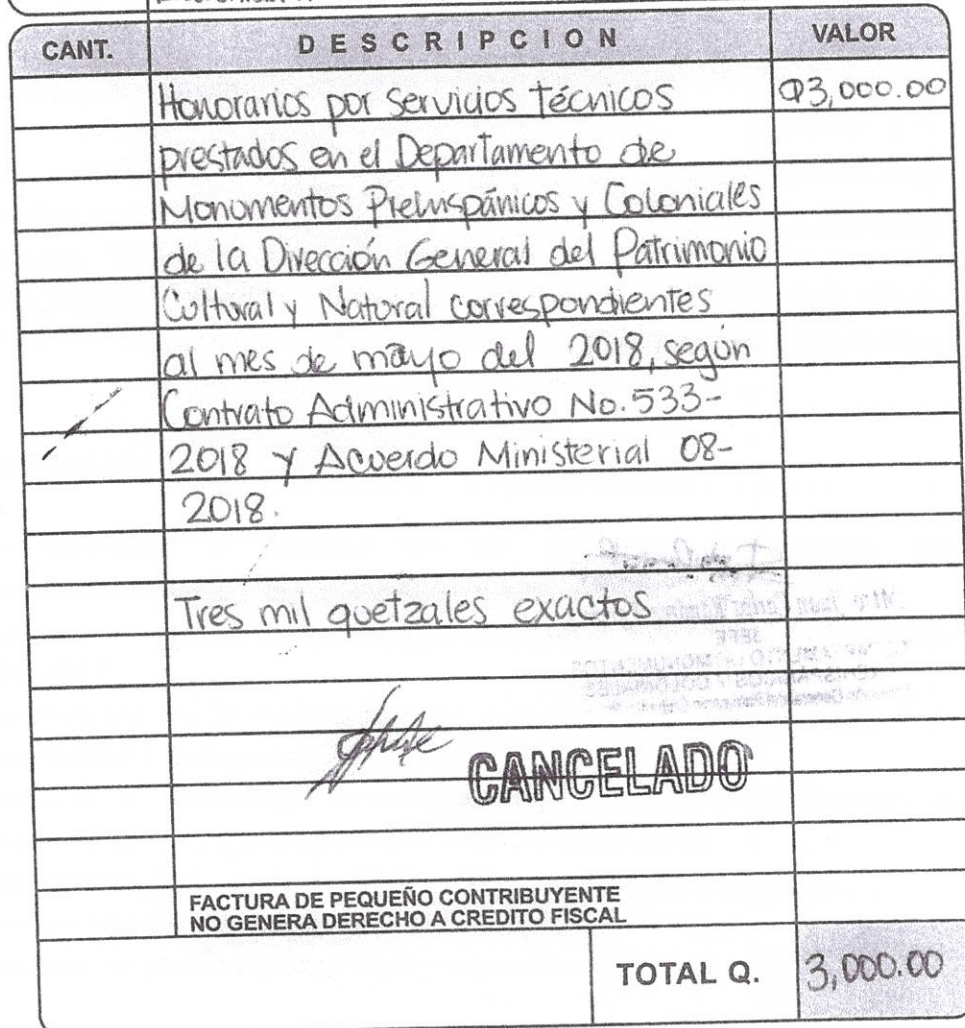 CANT. DESCRIPCION VALOR
Honorarios por servicios técnicos Q3,000.00
prestados en el Departamento de
Monumentos Prehispánicos y Coloniales
de la Dirección General del Patrimonio
Cultural y Natural correspondientes
al mes de mayo del 2018, según
Contrato Administrativo No. 533-
2018 y Acuerdo Ministerial 08-
2018.
Tres mil quetzales exactos
CANCELADO
FACTURA DE PEQUEÑO CONTRIBUYENTE
NO GENERA DERECHO A CREDITO FISCAL
TOTAL Q. 3,000.00